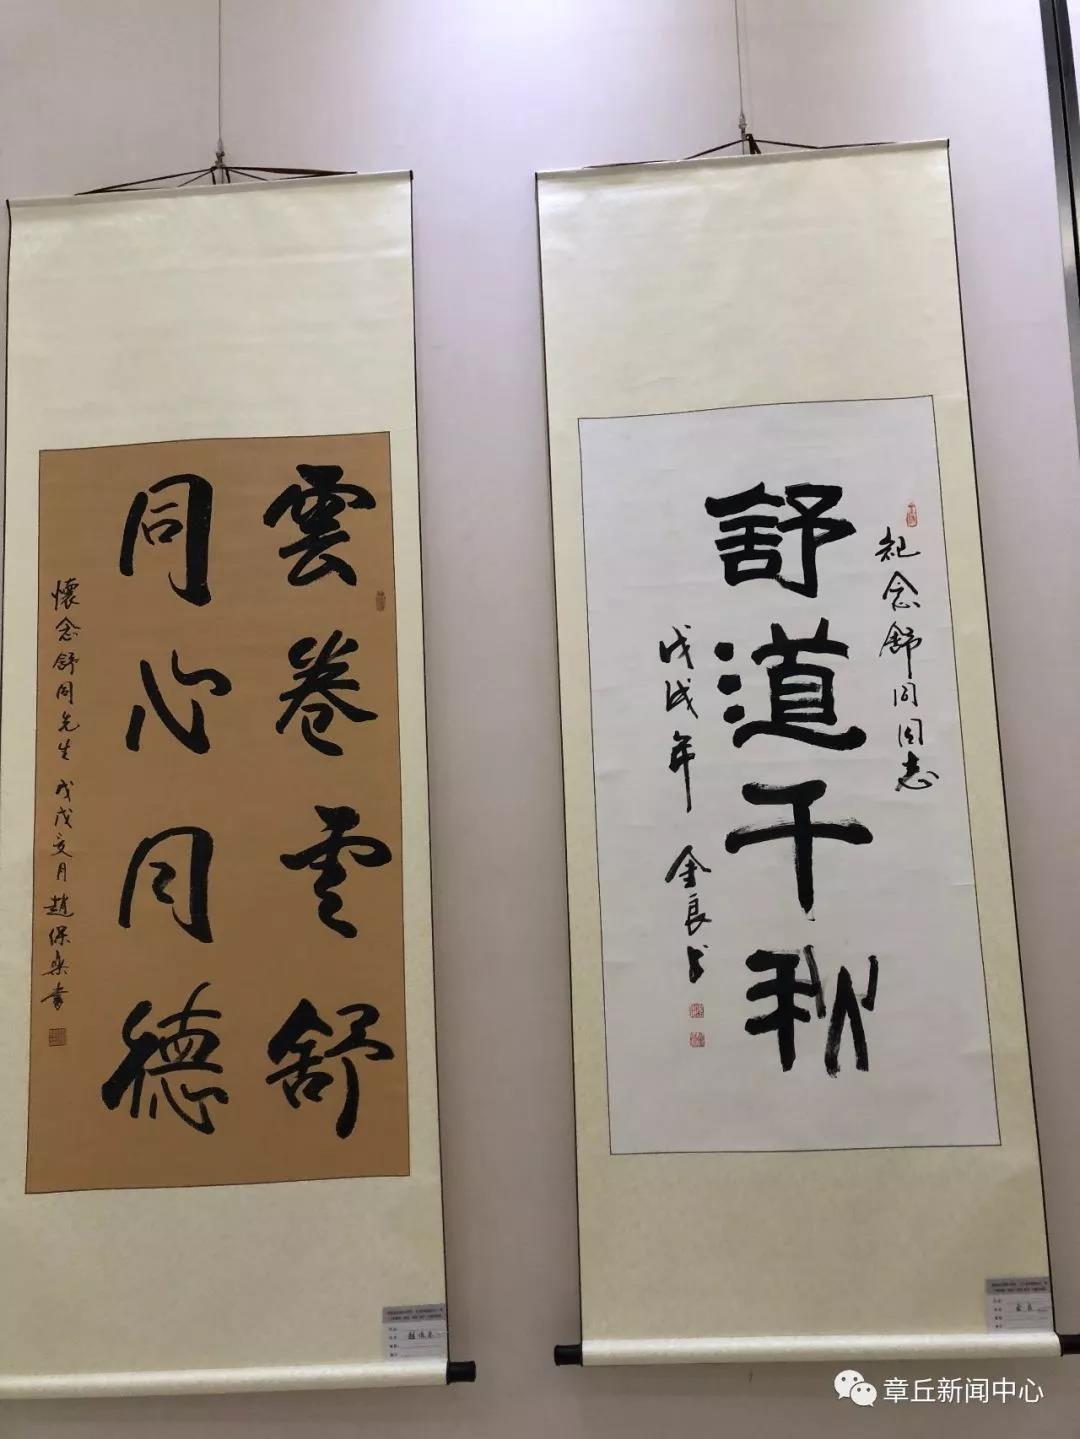 雲卷雲舒
同心同德
懷念舒同先生 戊戌亥月 趙保樂書
紀念舒同同志
舒道千秋
戊戌年 金良书
章丘新闻中心